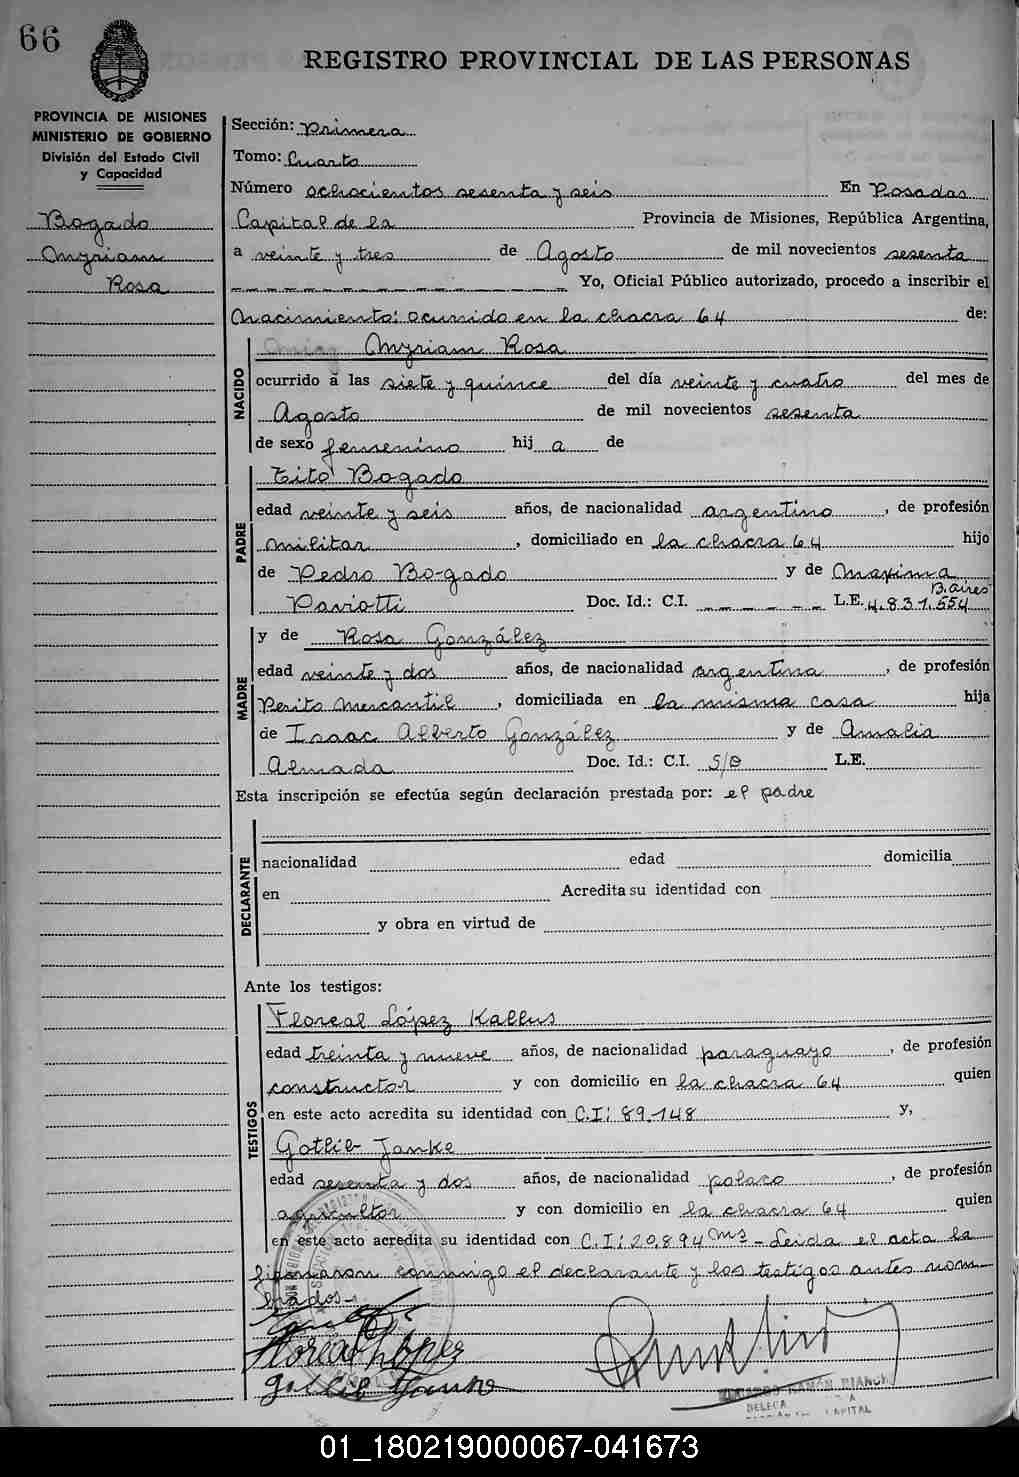 66
REGISTRO PROVINCIAL DE LAS PERSONAS
PROVINCIA DE MISIONES
MINISTERIO DE GOBIERNO
División del Estado Civil
y Capacidad
Bogado
Myriam
Rosa
Sección: Primera
Tomo: Cuarto
Número ochocientos sesenta y seis En Posadas
Capital de la Provincia de Misiones, República Argentina,
a veinte y tres de Agosto de mil novecientos sesenta
Yo, Oficial Público autorizado, procedo a inscribir el
Nacimiento: ocurrido en la chacra 64 de:
NACIDO
Myriam Rosa
ocurrido a las siete y quince del día veinte y cuatro del mes de
Agosto de mil novecientos sesenta
de sexo femenino hij a de
PADRE
Tito Bogado
edad veinte y seis años, de nacionalidad argentino, de profesión
militar, domiciliado en la chacra 64 hijo
de Pedro Bogado y de Maxima
Paviotti Doc. Id.: C.I. L.E. 4.831.554 B. Aires
MADRE
y de Rosa González
edad veinte y dos años, de nacionalidad argentina, de profesión
Perito Mercantil, domiciliada en la misma casa hija
de Isaac Alberto González y de Amalia
Almada Doc. Id.: C.I. S/D L.E.
Esta inscripción se efectúa según declaración prestada por: el padre
DECLARANTE
nacionalidad edad domicilia
en Acredita su identidad con
y obra en virtud de
Ante los testigos:
TESTIGOS
Floreal López Kallus
edad treinta y nueve años, de nacionalidad paraguayo, de profesión
constructor y con domicilio en la chacra 64 quien
en este acto acredita su identidad con C.I: 89.148 y,
Gotlib Janke
edad sesenta y dos años, de nacionalidad polaco, de profesión
agricultor y con domicilio en la chacra 64 quien
en este acto acredita su identidad con C.I: 20.894 Mns - Leida el acta la
firmaron conmigo el declarante y los testigos antes nom-
brados -
Floreal López
Gotlib Janke
RAMÓN BIANCHI
CAPITAL
01_180219000067-041673